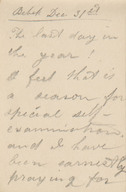 Bebek Dec 31st
The last day in
the year!
I feel that is
a season for
special self-
examination,
and I have
been earnestly
praying for